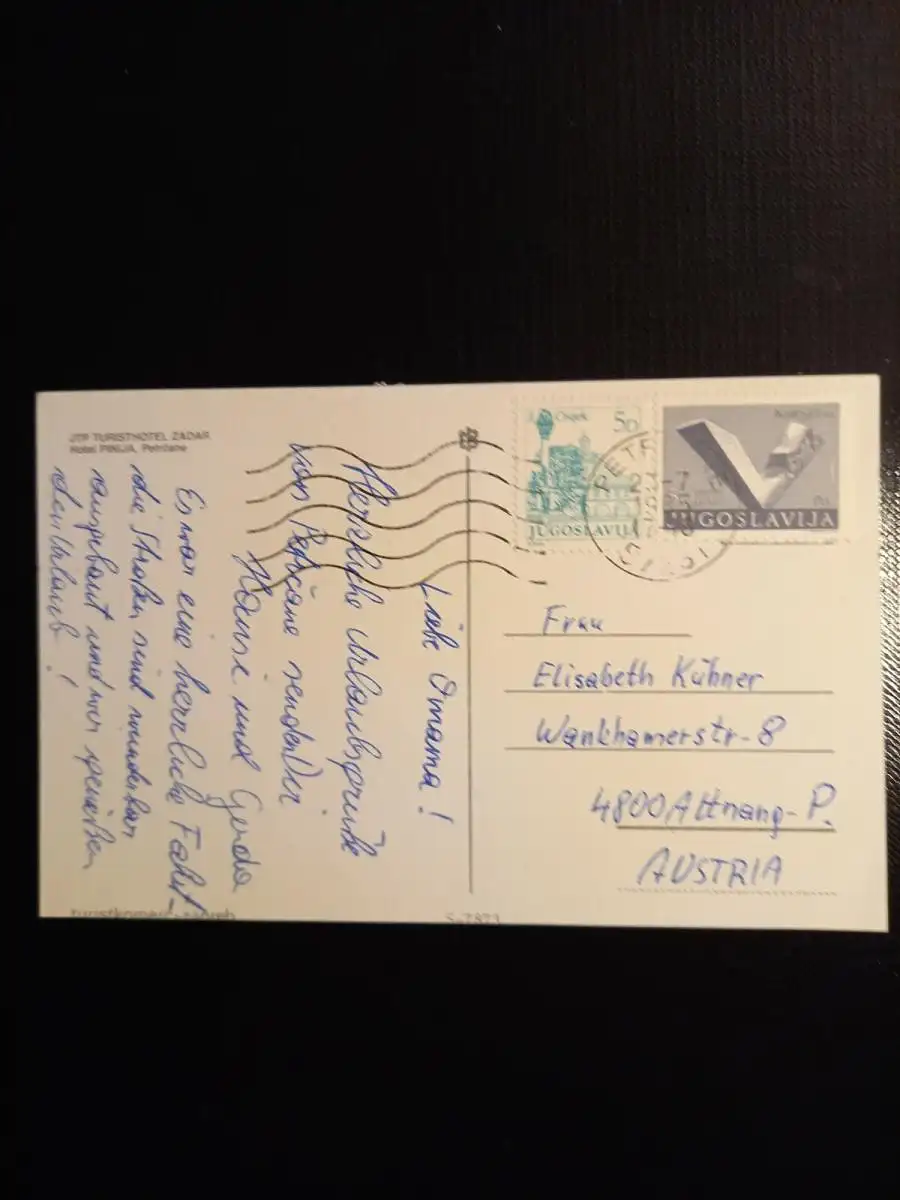 JTP TURISTHOTEL ZADAR
Hotel PINIJA, Petrčane
Liebe Omama!
Herzliche Urlaubsgrüße
von Petrčane senden Dir
und Gerda
Es war eine herrliche Fahrt -
die Straßen sind wunderbar
ausgebaut und wir genießen
den Urlaub!
Osijek 50
JUGOSLAVIJA
JUGOSLAVIJA
Frau
Elisabeth Kühner
Wankhamerstr-8
4800 Attnang-P.
AUSTRIA
turistkomerc - zagreb
S-7873